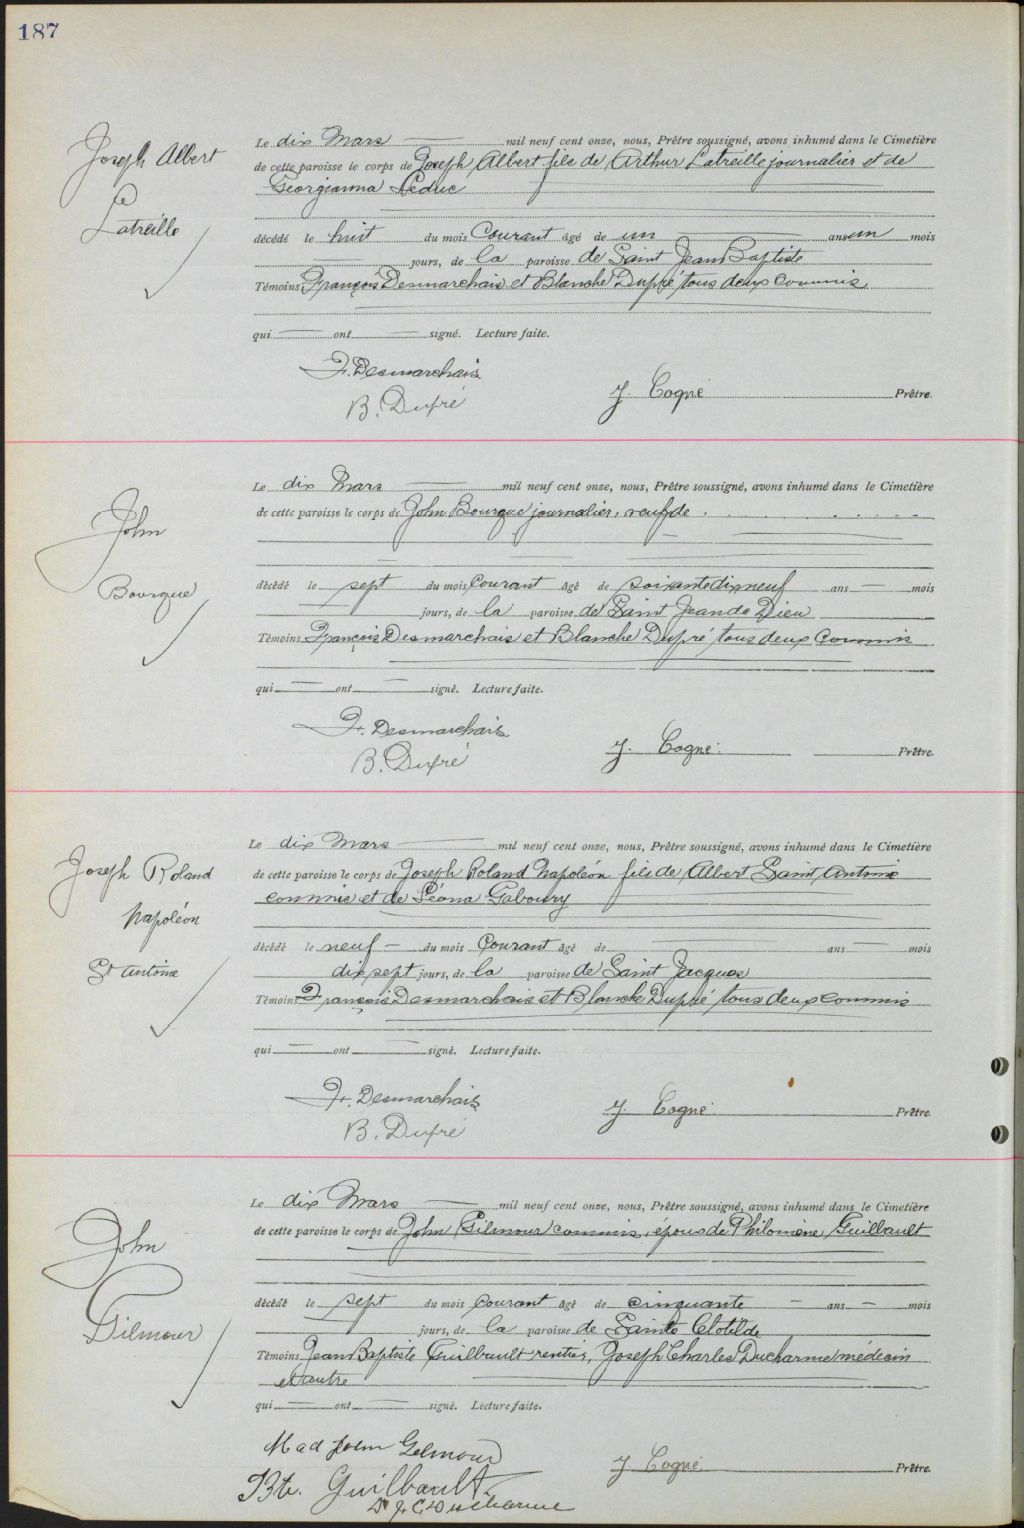 187
Joseph Albert
Latreille
Le dix Mars mil neuf cent onze, nous, Prêtre soussigné, avons inhumé dans le Cimetière
de cette paroisse le corps de Joseph Albert fils de Arthur Latreille journalier et de
Georgianna Leduc
décédé le huit du mois Courant âgé de un ans un mois
jours, de la paroisse de Saint Jean Baptiste
Témoins François Desmarchais et Blanche Dupré tous deux Commis
qui ont signé. Lecture faite.
F. Desmarchais
B. Dupré
J. Cogné Prêtre.
John
Bourque
Le dix Mars mil neuf cent onze, nous, Prêtre soussigné, avons inhumé dans le Cimetière
de cette paroisse le corps de John Bourque journalier, veuf de
décédé le sept du mois Courant âgé de soixante dix neuf ans mois
jours, de la paroisse de Saint Jean de Dieu
Témoins François Desmarchais et Blanche Dupré tous deux Commis
qui ont signé. Lecture faite.
F. Desmarchais
B. Dupré
J. Cogné Prêtre.
Joseph Roland
Napoléon
St Antoine
Le dix Mars mil neuf cent onze, nous, Prêtre soussigné, avons inhumé dans le Cimetière
de cette paroisse le corps de Joseph Roland Napoléon fils de Albert Saint Antoine
commis et de Léona Gaboury
décédé le neuf du mois Courant âgé de ans mois
dix sept jours, de la paroisse de Saint Jacques
Témoins François Desmarchais et Blanche Dupré tous deux commis
qui ont signé. Lecture faite.
F. Desmarchais
B. Dupré
J. Cogné Prêtre.
John
Gilmour
Le dix Mars mil neuf cent onze, nous, Prêtre soussigné, avons inhumé dans le Cimetière
de cette paroisse le corps de John Gilmour commis, époux de Philomène Guilbault
décédé le sept du mois Courant âgé de cinquante ans mois
jours, de la paroisse de Sainte Clotilde
Témoins Jean Baptiste Guilbault rentier, Joseph Charles Ducharme médecin
et autre
qui ont signé. Lecture faite.
Mad John Gilmour
J. Bte. Guilbault
Dr J. C. Ducharme
J. Cogné Prêtre.